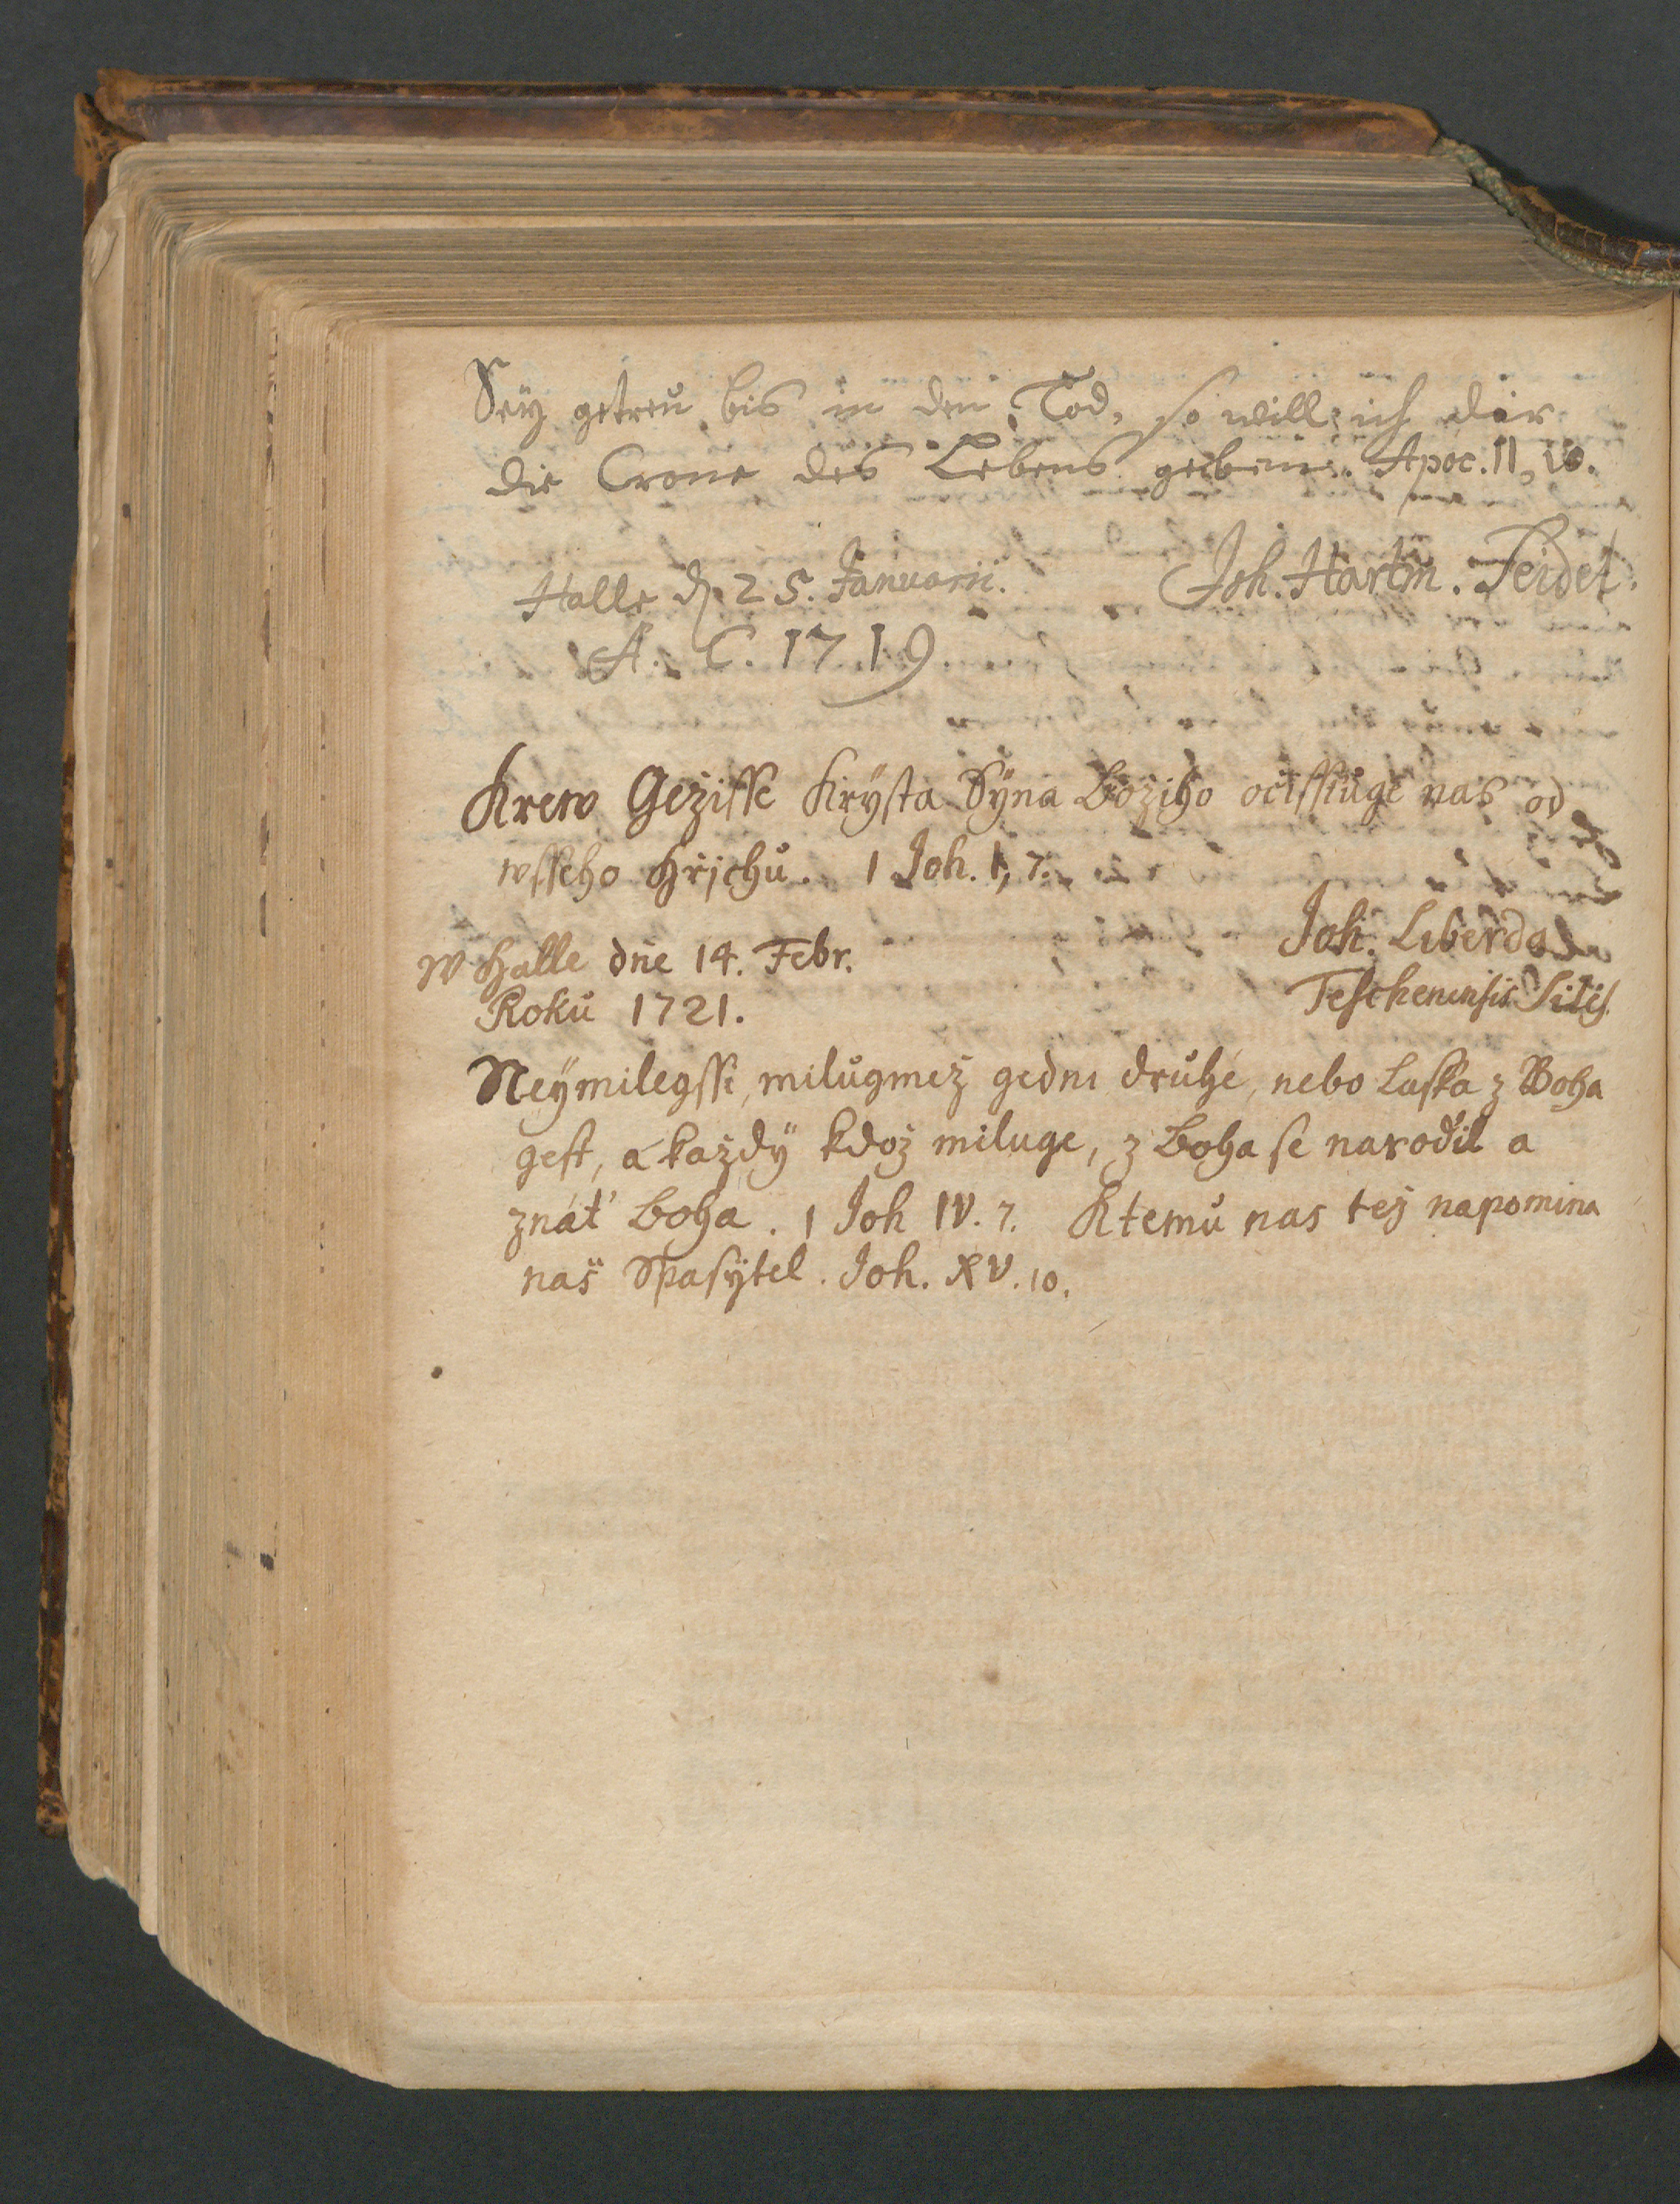 Seÿ getreu bis in den Tod, so will ich dir
die Crone des Lebens geben. Apoc. II, 10.
Halle d. 25. Januarii. Joh. Hartm. Seidel.
A. C. 1719.
Krew Gežisse Krÿsta Sÿna Božiho očissiuge nas od
wsseho hřjchu. 1 Joh. 1, 7.
w Halle dne 14. Febr. Joh. Liberda
Roku 1721. Teschenensis Siles.
Neÿmilegssi, milugmež gedni druhé, nebo Laska z Boha
gest, a každÿ kdož miluge, z Boha se narodil a
znát Boha. 1 Joh IV. 7. K temu nas tej napomina
naš Spasÿtel. Joh. XV. 10.